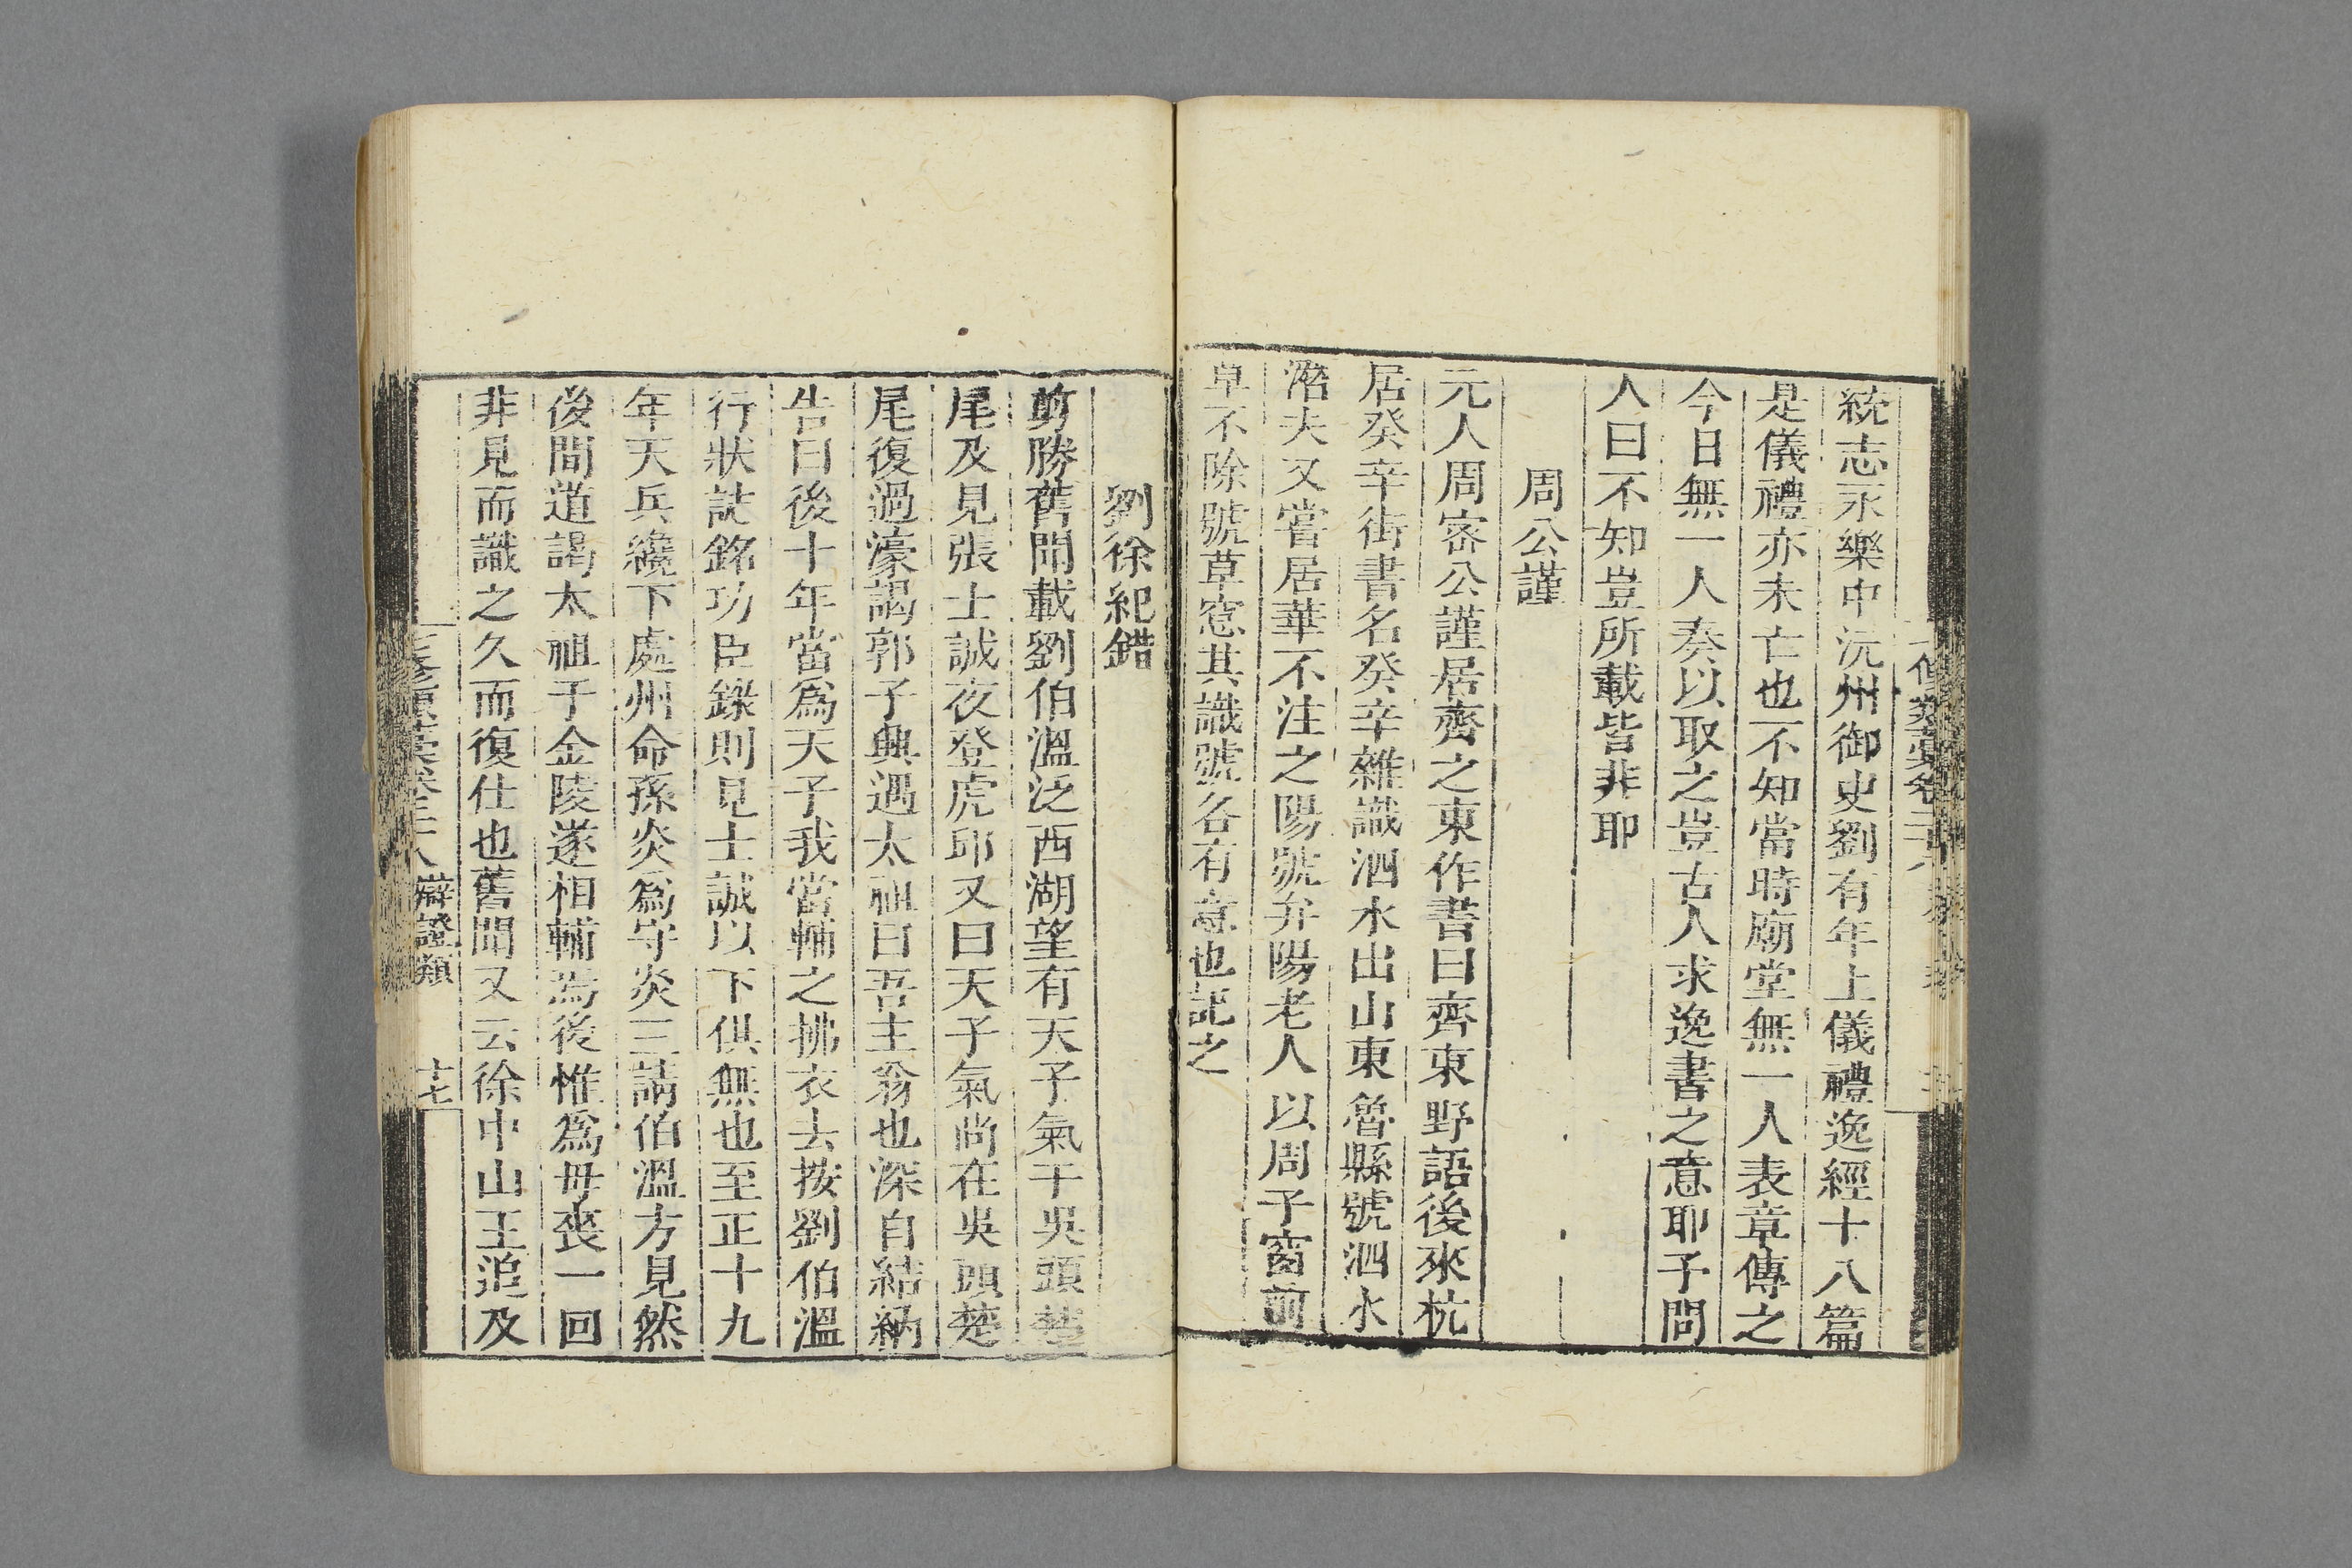 統志永樂中沅州御史劉有年上儀禮逸經十八篇
是儀禮亦未亡也不知當時廟堂無一人表章傳之
今日無一人奏以取之豈古人求逸書之意耶予問
人曰不知豈所載皆非耶
周公謹
元人周密公謹居齊之東作書曰齊東野語後來杭
居癸辛街書名癸辛雜識泗水出山東魯縣號泗水
潛夫又嘗居華不注之陽號弁陽老人以周子窗前
草不除號草窓其識號各有意也記之
劉徐紀錯
剪勝舊聞載劉伯溫泛西湖望有天子氣干吳頭楚
尾及見張士誠夜登虎邱又曰天子氣尚在吳頭楚
尾復過濠謁郭子興遇太祖曰吾主翁也深自結納
告曰後十年當爲天子我當輔之拂衣去按劉伯溫
行狀誌銘功臣錄則見士誠以下俱無也至正十九
年天兵纔下處州命孫炎爲守炎三請伯溫方見然
後間道謁太祖于金陵遂相輔焉後惟爲母喪一回
非見而識之久而復仕也舊聞又云徐中山王追及
七修類藁卷二十八 辯證類 十七